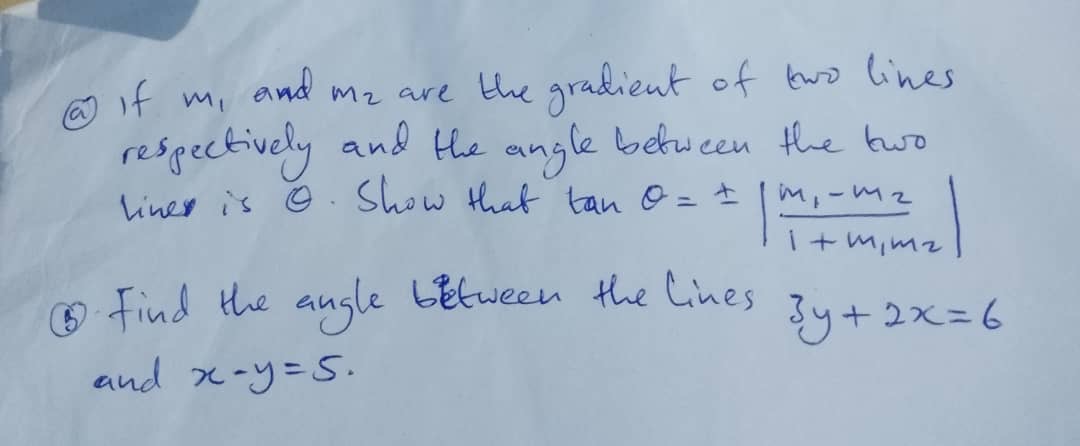 ⓐ If m₁ and m₂ are the gradient of two lines
respectively and the angle between the two
lines is θ. Show that tan θ = ± | m₁ - m₂ / 1 + m₁m₂ |
ⓑ. Find the angle between the lines 3y + 2x = 6
and x - y = 5.